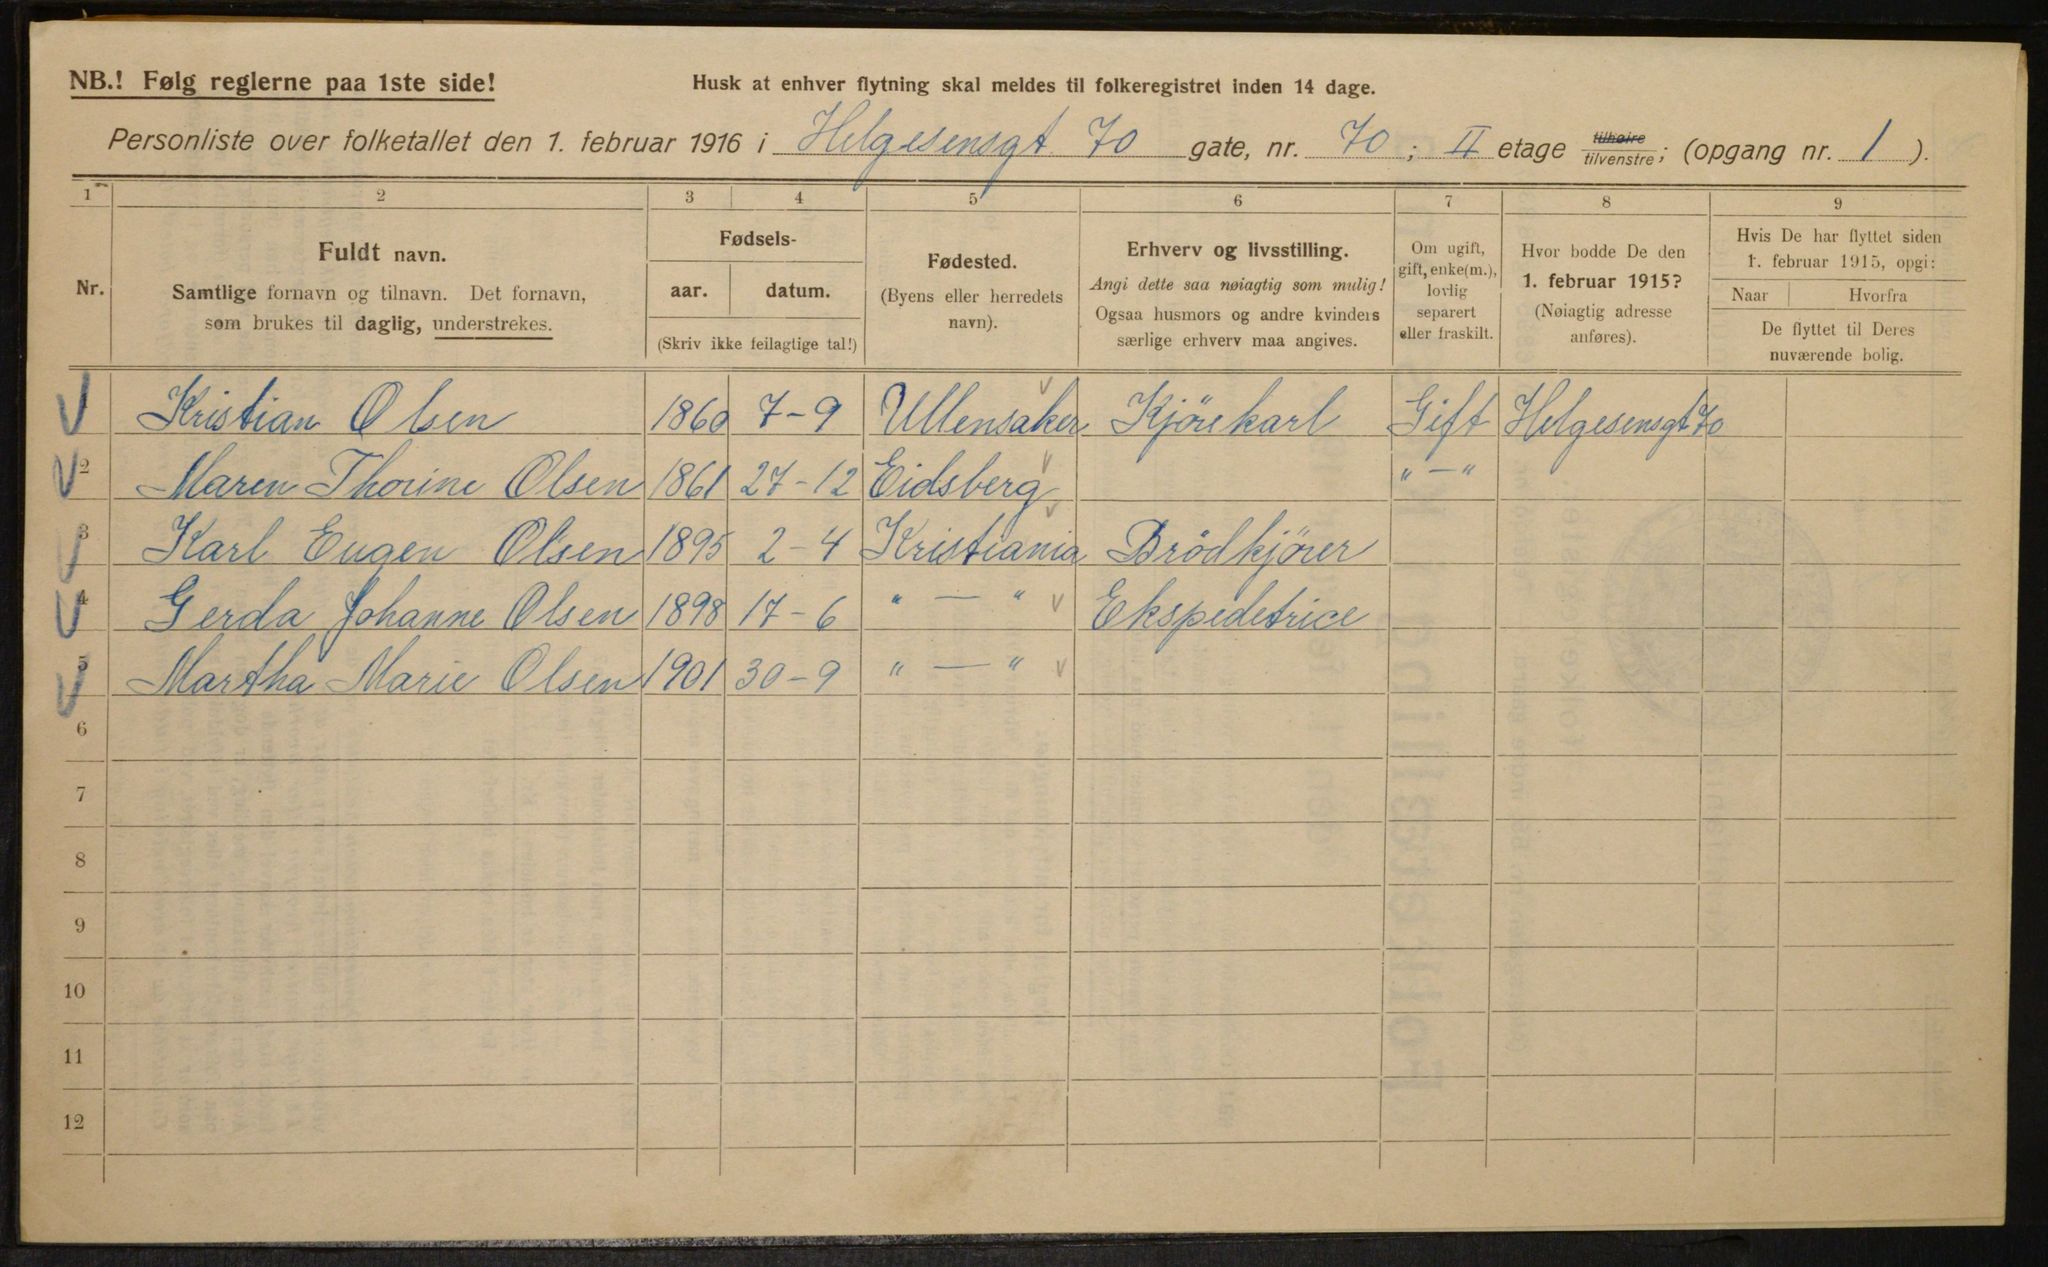 NB.! Følg reglerne paa 1ste side!
Husk at enhver flytning skal meldes til folkeregistret inden 14 dage.
Personliste over folketallet den 1. februar 1916 i Helgesensgt 70 gate, nr. 70; II etage tilhøire tilvenstre; (opgang nr. 1).
1 2 3 4 5 6 7 8 9
Nr.
Fuldt navn.
Samtlige fornavn og tilnavn. Det fornavn,
som brukes til daglig, understrekes.
Fødsels-
aar. datum.
(Skriv ikke feilagtige tal!)
Fødested.
(Byens eller herredets
navn).
Erhverv og livsstilling.
Angi dette saa nøiagtig som mulig!
Ogsaa husmors og andre kvinders
særlige erhverv maa angives.
Om ugift,
gift, enke(m.),
lovlig
separert
eller fraskilt.
Hvor bodde De den
1. februar 1915?
(Nøiagtig adresse
anføres).
Hvis De har flyttet siden
1. februar 1915, opgi:
Naar Hvorfra
De flyttet til Deres
nuværende bolig.
Kristian Olsen 1860 7-9 Ullensaker Kjörekarl Gift Helgesensgt 70
2 Maren Thorine Olsen 1861 27-12 Eidsberg " — "
3 Karl Eugen Olsen 1895 2-4 Kristiania Brödkjörer
4 Gerda Johanne Olsen 1898 17-6 " — " Ekspedetrice
5 Martha Marie Olsen 1901 30-9 " — "
6
7
8
9
10
11
12